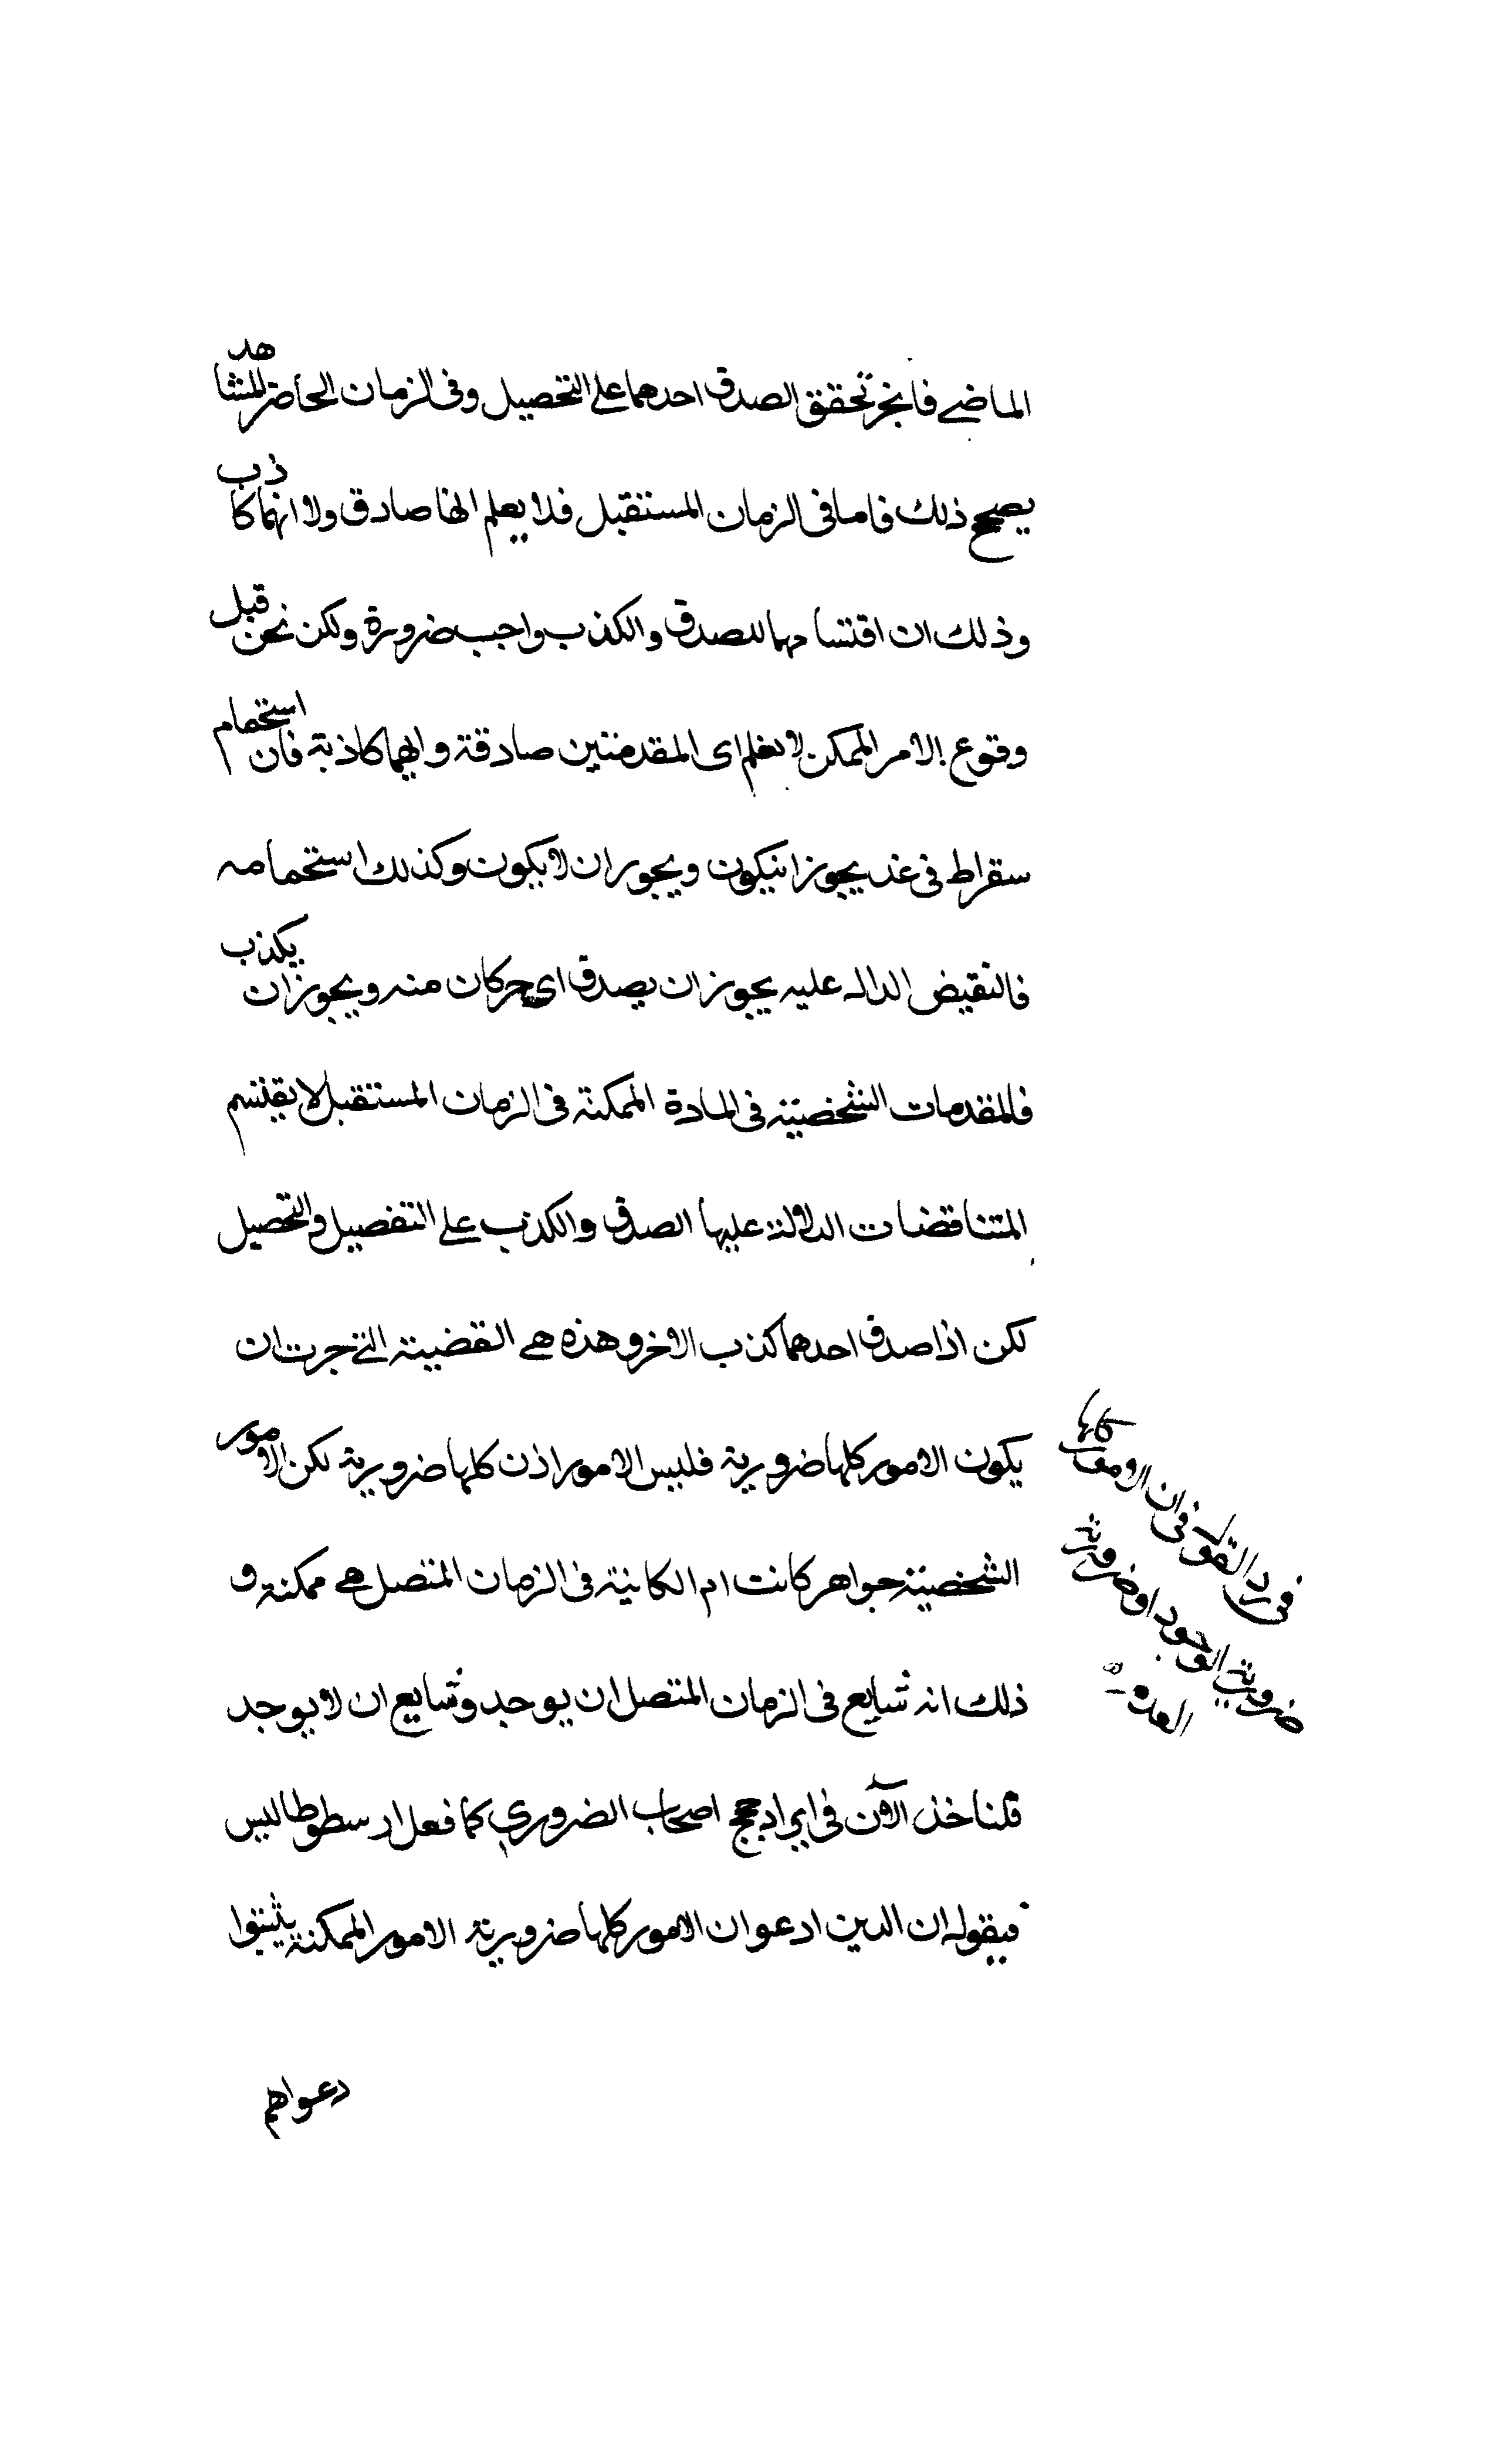 الماضي فانجز تحقق الصدق احدهما على التحصيل وفى الزمان الحاضر المشاهد
يصح ذلك فاما فى الزمان المستقبل فلا يعلم انها صادق ولا انهما كاذب
وذلك ان اقتسامهما للصدق والكذب واجب ضرورة ولكن نحن قبل
وقوع الامر الممكن لا نعلم اى المقدمتين صادقة وايهما كاذبة فان استحمام
سقراط فى غد يجوز انيكون ويجوز ان لا يكون وكذلك استحمامه
فالنقيض الداله عليه يجوز ان يصدق اى جز كان منه ويجوز ان يكذب
فالمقدمات الشخصية فى المادة الممكنة فى الزمان المستقبل لا يقتسم
المتناقضات الدلالة عليها الصدق والكذب على التفصيل والتحصيل
لكن اذا صدق احدهما كذب الاخر وهذه هى القضية التى جرت ان
يكون الامور كلها ضرورية فليس الامور اذن كلها ضرورية لكن الامور
الشخصية جواهر كانت ام الكاينة فى الزمان المتصل هى ممكنة و
ذلك انه شايع فى الزمان المتصل ان يوجد وشايع ان لا يوجد
فلناخذ الآن فى ايراد حجج اصحاب الضروري كما فعل ارسطوطاليس
فيقوله ان الدين ادعو ان الامور كلها ضرورية الامور الممكنة يثبتوا
دعواهم
فى رد القول فى ان الامور كلها
ضرورية الوجود او ضرورية
العدم